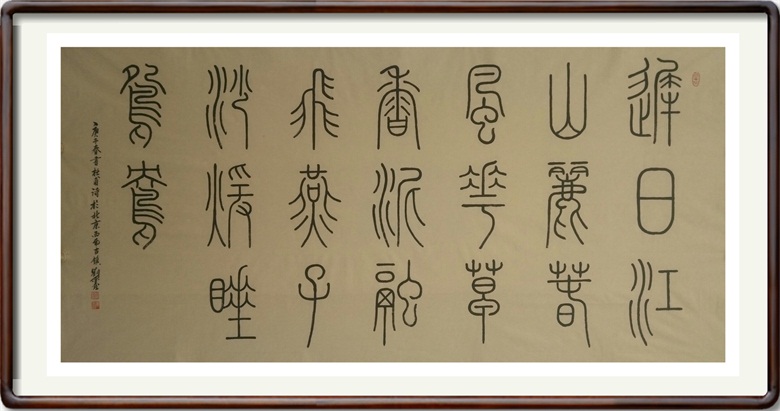 遲日江
山麗春
風花草
香泥融
飛燕子
沙暖睡
鴛鴦
庚子春書杜甫詩於北京